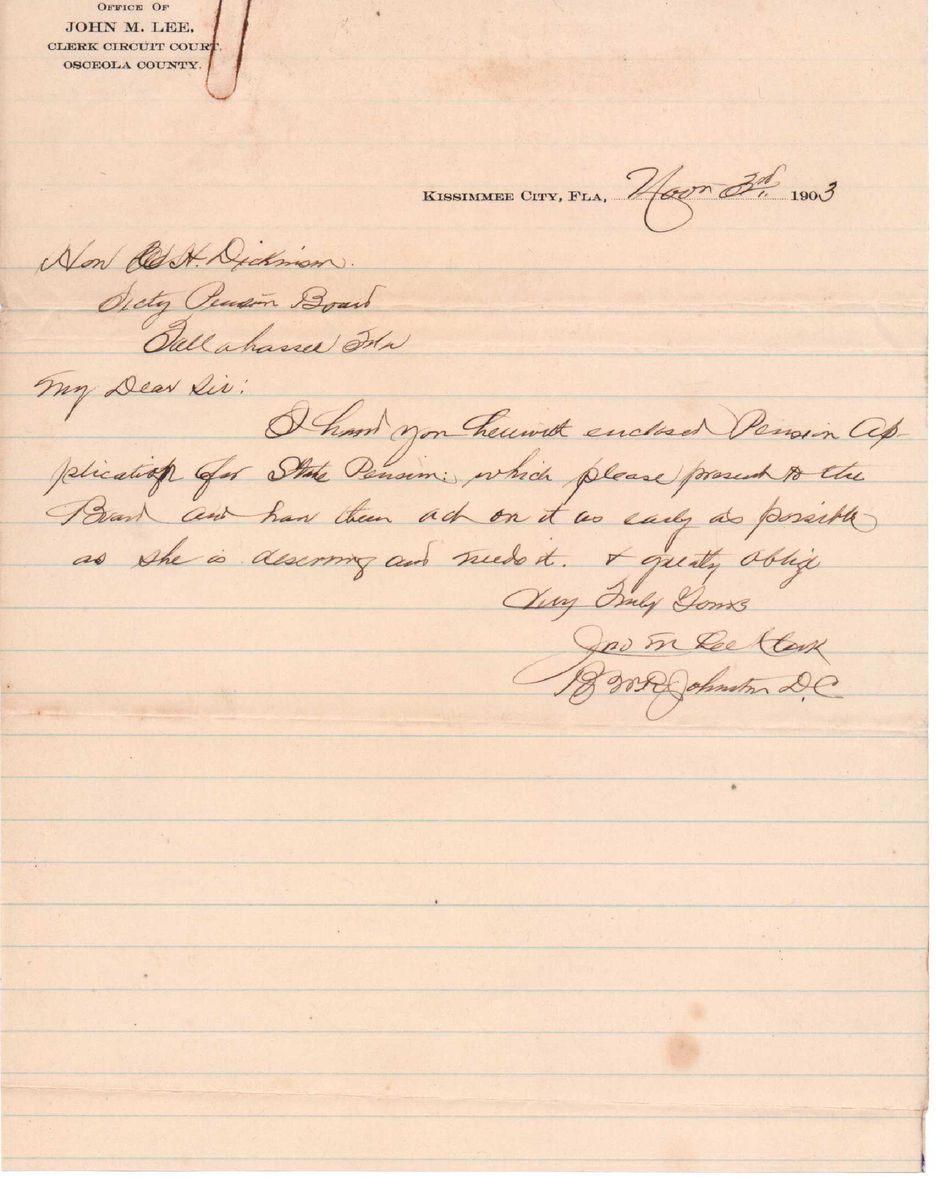 OFFICE OF
JOHN M. LEE,
CLERK CIRCUIT COURT,
OSCEOLA COUNTY.
KISSIMMEE CITY, FLA, Nov 3rd. 1903
Hon H. Dickinson.
Secty Pension Board
Tallahassee Fla
My Dear Sir:
I hand you herewith enclosed Pension Ap-
plication for State Pension: which please present to the
Board and have them act on it as early as possible
as she is deserving and needs it. & greatly oblige
Very Truly Yours
Jno M Lee Clerk
By W R Johnston D.C